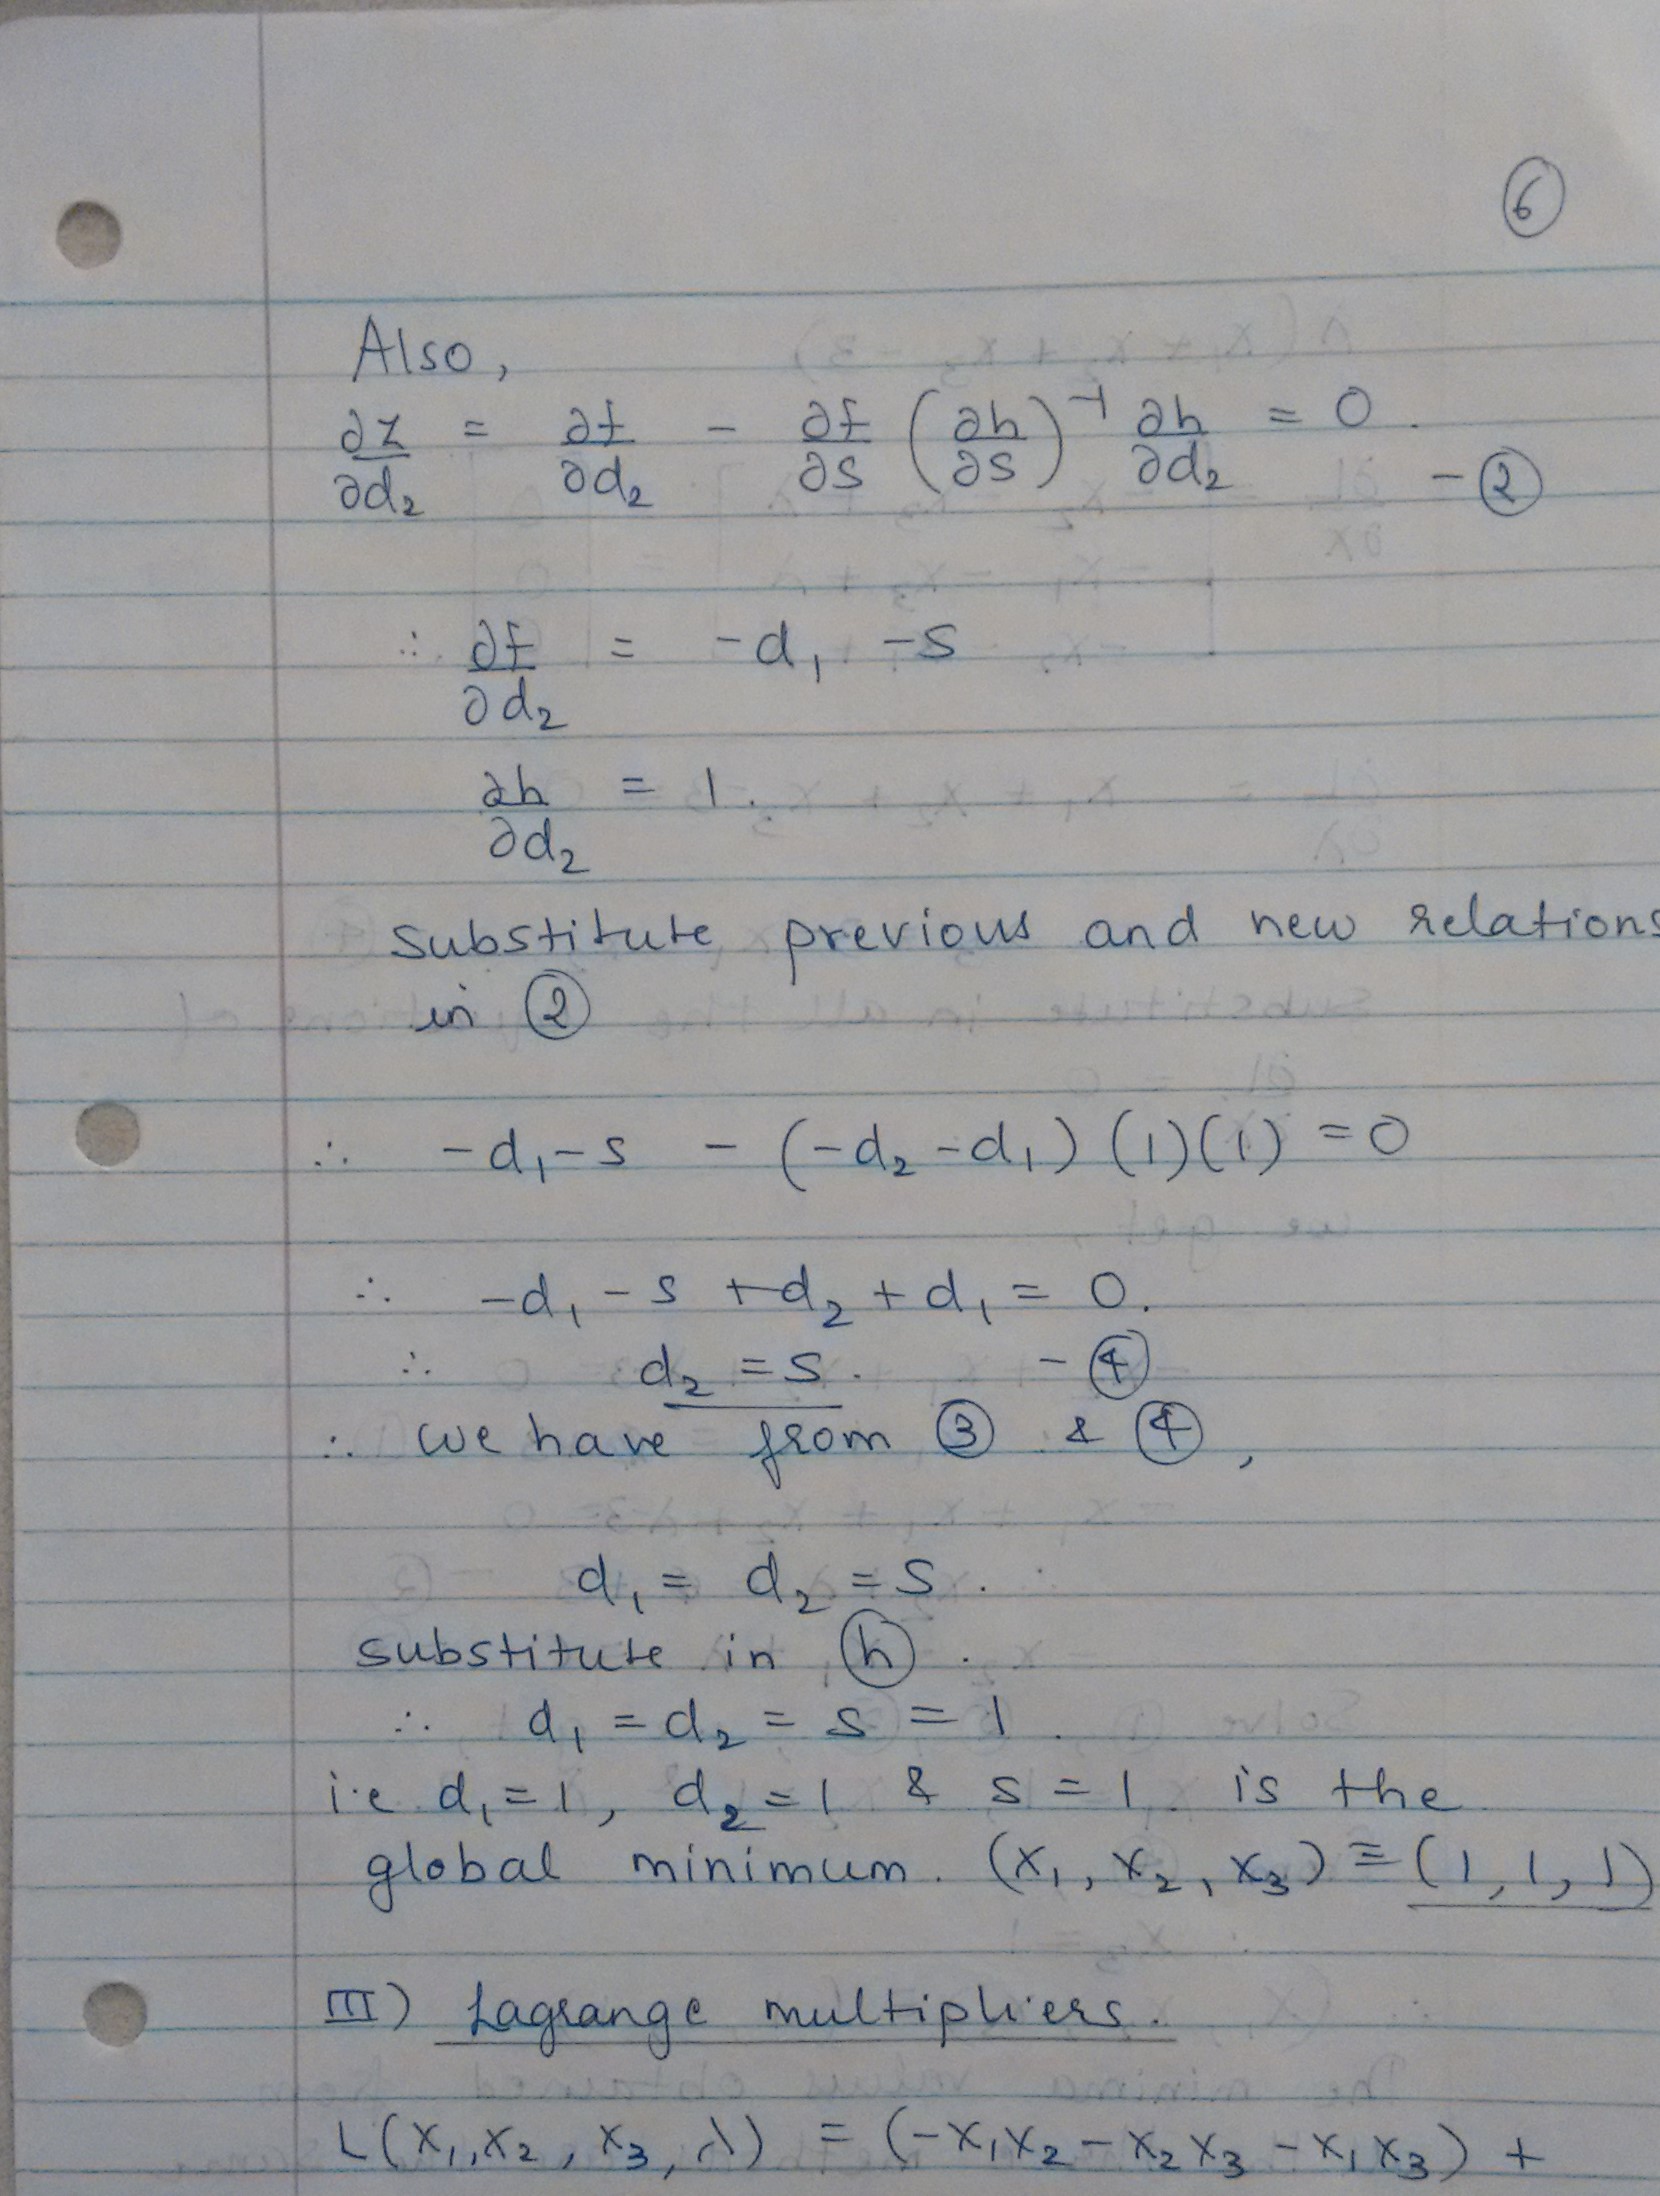 6
Also,
∂z/∂d₂ = ∂f/∂d₂ - ∂f/∂s (∂h/∂s)⁻¹ ∂h/∂d₂ = 0. - ②
∴ ∂f/∂d₂ = -d₁ -s
∂h/∂d₂ = 1.
substitute previous and new relations
in ②
∴ -d₁-s - (-d₂-d₁) (1)(1) = 0
∴ -d₁ - s +d₂ + d₁ = 0.
∴ d₂ = s. - ④
∴ we have from ③ & ④,
d₁ = d₂ = s.
substitute in ⓗ.
∴ d₁ = d₂ = s = 1.
i.e d₁ = 1, d₂ = 1 & s = 1. is the
global minimum. (x₁, x₂, x₃) ≡ (1, 1, 1)
III) Lagrange multipliers.
L(x₁, x₂, x₃, λ) = (-x₁x₂ - x₂x₃ - x₁x₃) +